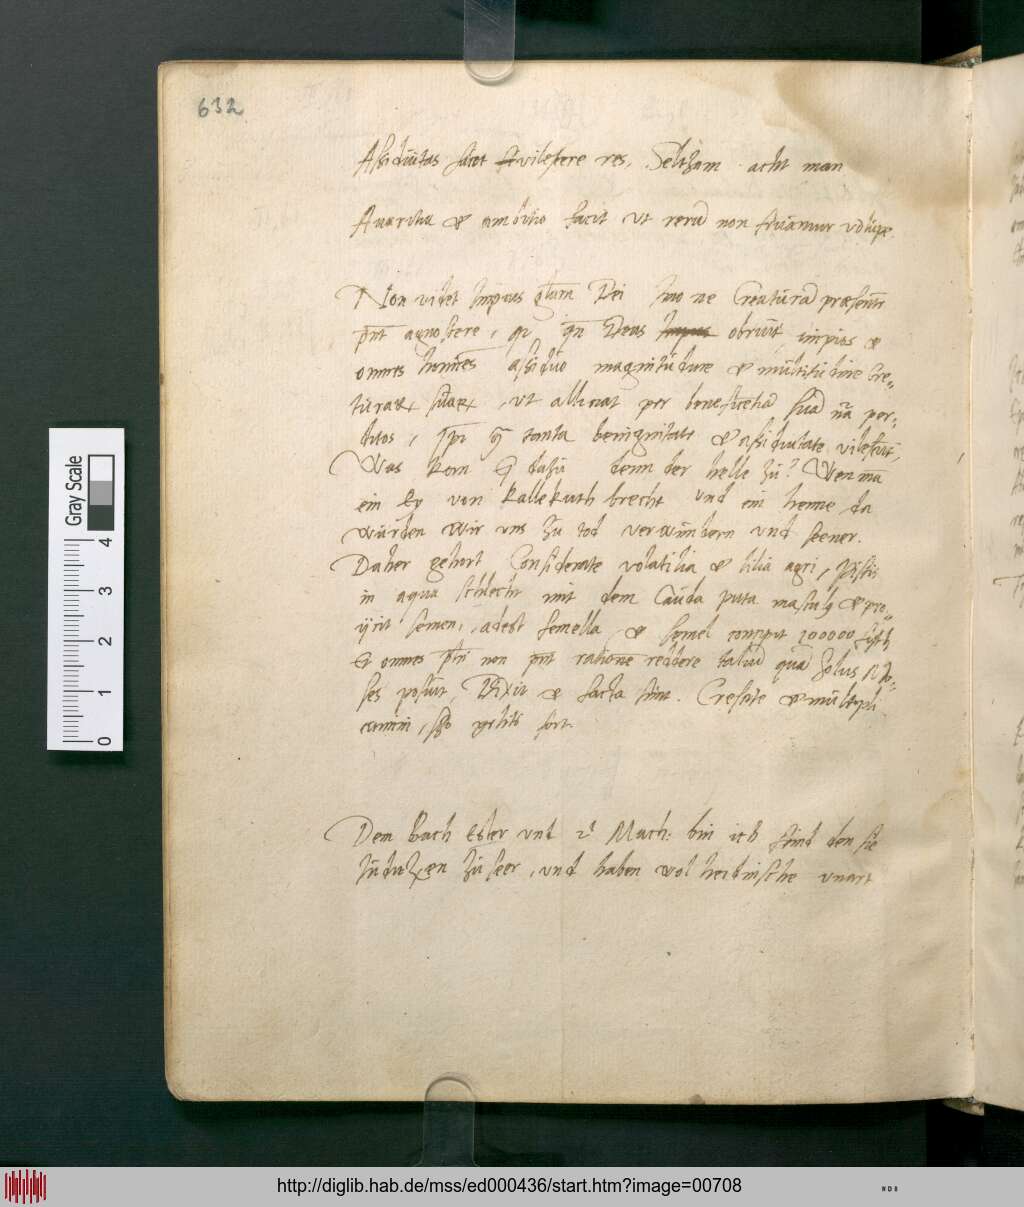 632
Assiduitas facit vilescere res, Seltzam acht man
Auaritia et ambitio facit vt rerū non fruamur volupe.
Non videt Impius gloriam Dei Imo ne Creaturā præsentē
pn̄t agnoscere, qz qn̄ Deus obruit impios et
omnes homīes assiduo magnitudine et multitudine Cre-
turarū suarū, vt alliciat per beneficētiā suā nr̄a per-
ditos, tanta benignitate et assiduitate vilescūt,
Was Korn Ey dazu denn der helle zu? Wen mā
ein Ey von Kallekuth brecht vnd ein henne da
wurden wir vns zu tod verwundern vnd feener.
Daher gehort Considerate volatilia et lilia agri, Piscis
in aqua schlecht mit dem Cauda puta masculus et pro-
ijcit semen, adest femella et semel concipit 100000 fisch
Et omnes non pn̄t rationē reddere taliū quā solus Mo-
ses posuit, Dixit et facta sūnt. Crescite et multipli
camini, so gehets fort.
Dem Buch Ester vnd 2 Mach: bin ich feind den sie
Judentzen zu seer, vnd haben wol heidnische vnart
Gray Scale
0 1 2 3 4
http://diglib.hab.de/mss/ed000436/start.htm?image=00708